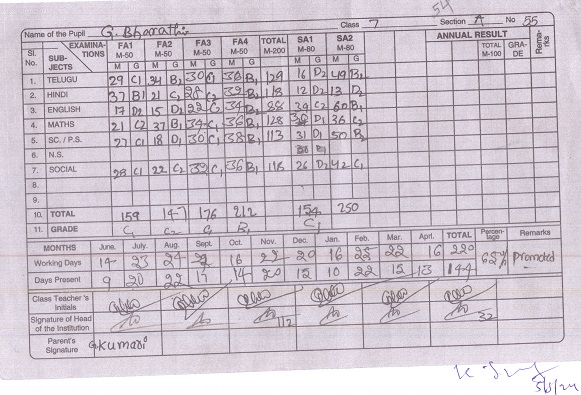 54
Name of the Pupil G. Bharathi Class 7 Section A No 55
Sl. No. EXAMINATIONS SUBJECTS FA1 M-50 FA2 M-50 FA3 M-50 FA4 M-50 TOTAL M-200 SA1 M-80 SA2 M-80 ANNUAL RESULT TOTAL M-100 GRADE Remarks
M G M G M G M G M G M G
1. TELUGU 29 C1 34 B2 30 C1 36 B1 129 16 D2 49 B2
2. HINDI 37 B1 21 C2 28 C2 32 B2 118 12 D2 13 D2
3. ENGLISH 17 D2 15 D1 22 C2 34 B2 88 24 C2 60 B1
4. MATHS 21 C2 37 B1 34 C1 36 B1 128 D1 36 C2
5. SC. / P.S. 27 C1 18 D1 30 C1 38 B1 113 31 D1 50 B2
6. N.S.
7. SOCIAL 28 C1 22 C2 32 C1 36 B1 118 26 D2 42 C1
8.
9.
10. TOTAL 159 147 176 212 154 250
11. GRADE C1 C2 C1 B1 C1
MONTHS June. July. Aug. Sept. Oct. Nov. Dec. Jan. Feb. Mar. Aprl. TOTAL Percentage Remarks
Working Days 14 23 24 16 22 20 16 22 22 16 220 Promoted
Days Present 9 20 22 17 14 20 12 10 22 12 13
Class Teacher's Initials
Signature of Head of the Institution 112 32
Parent's Signature G.Kumari